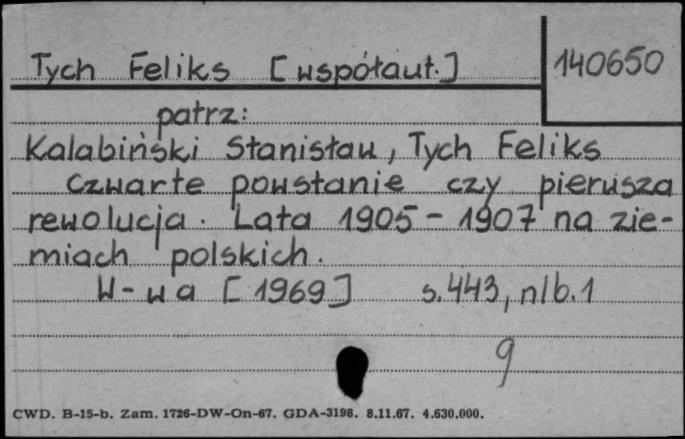 Tych Feliks [współaut.]
140650
patrz:
Kalabiński Stanisław, Tych Feliks
Czwarte powstanie czy pierwsza
rewolucja. Lata 1905-1907 na zie-
miach polskich.
W-wa [1969] s.443, nlb.1
9
CWD. B-15-b. Zam. 1726-DW-On-67. GDA-3198. 8.11.67. 4.630.000.